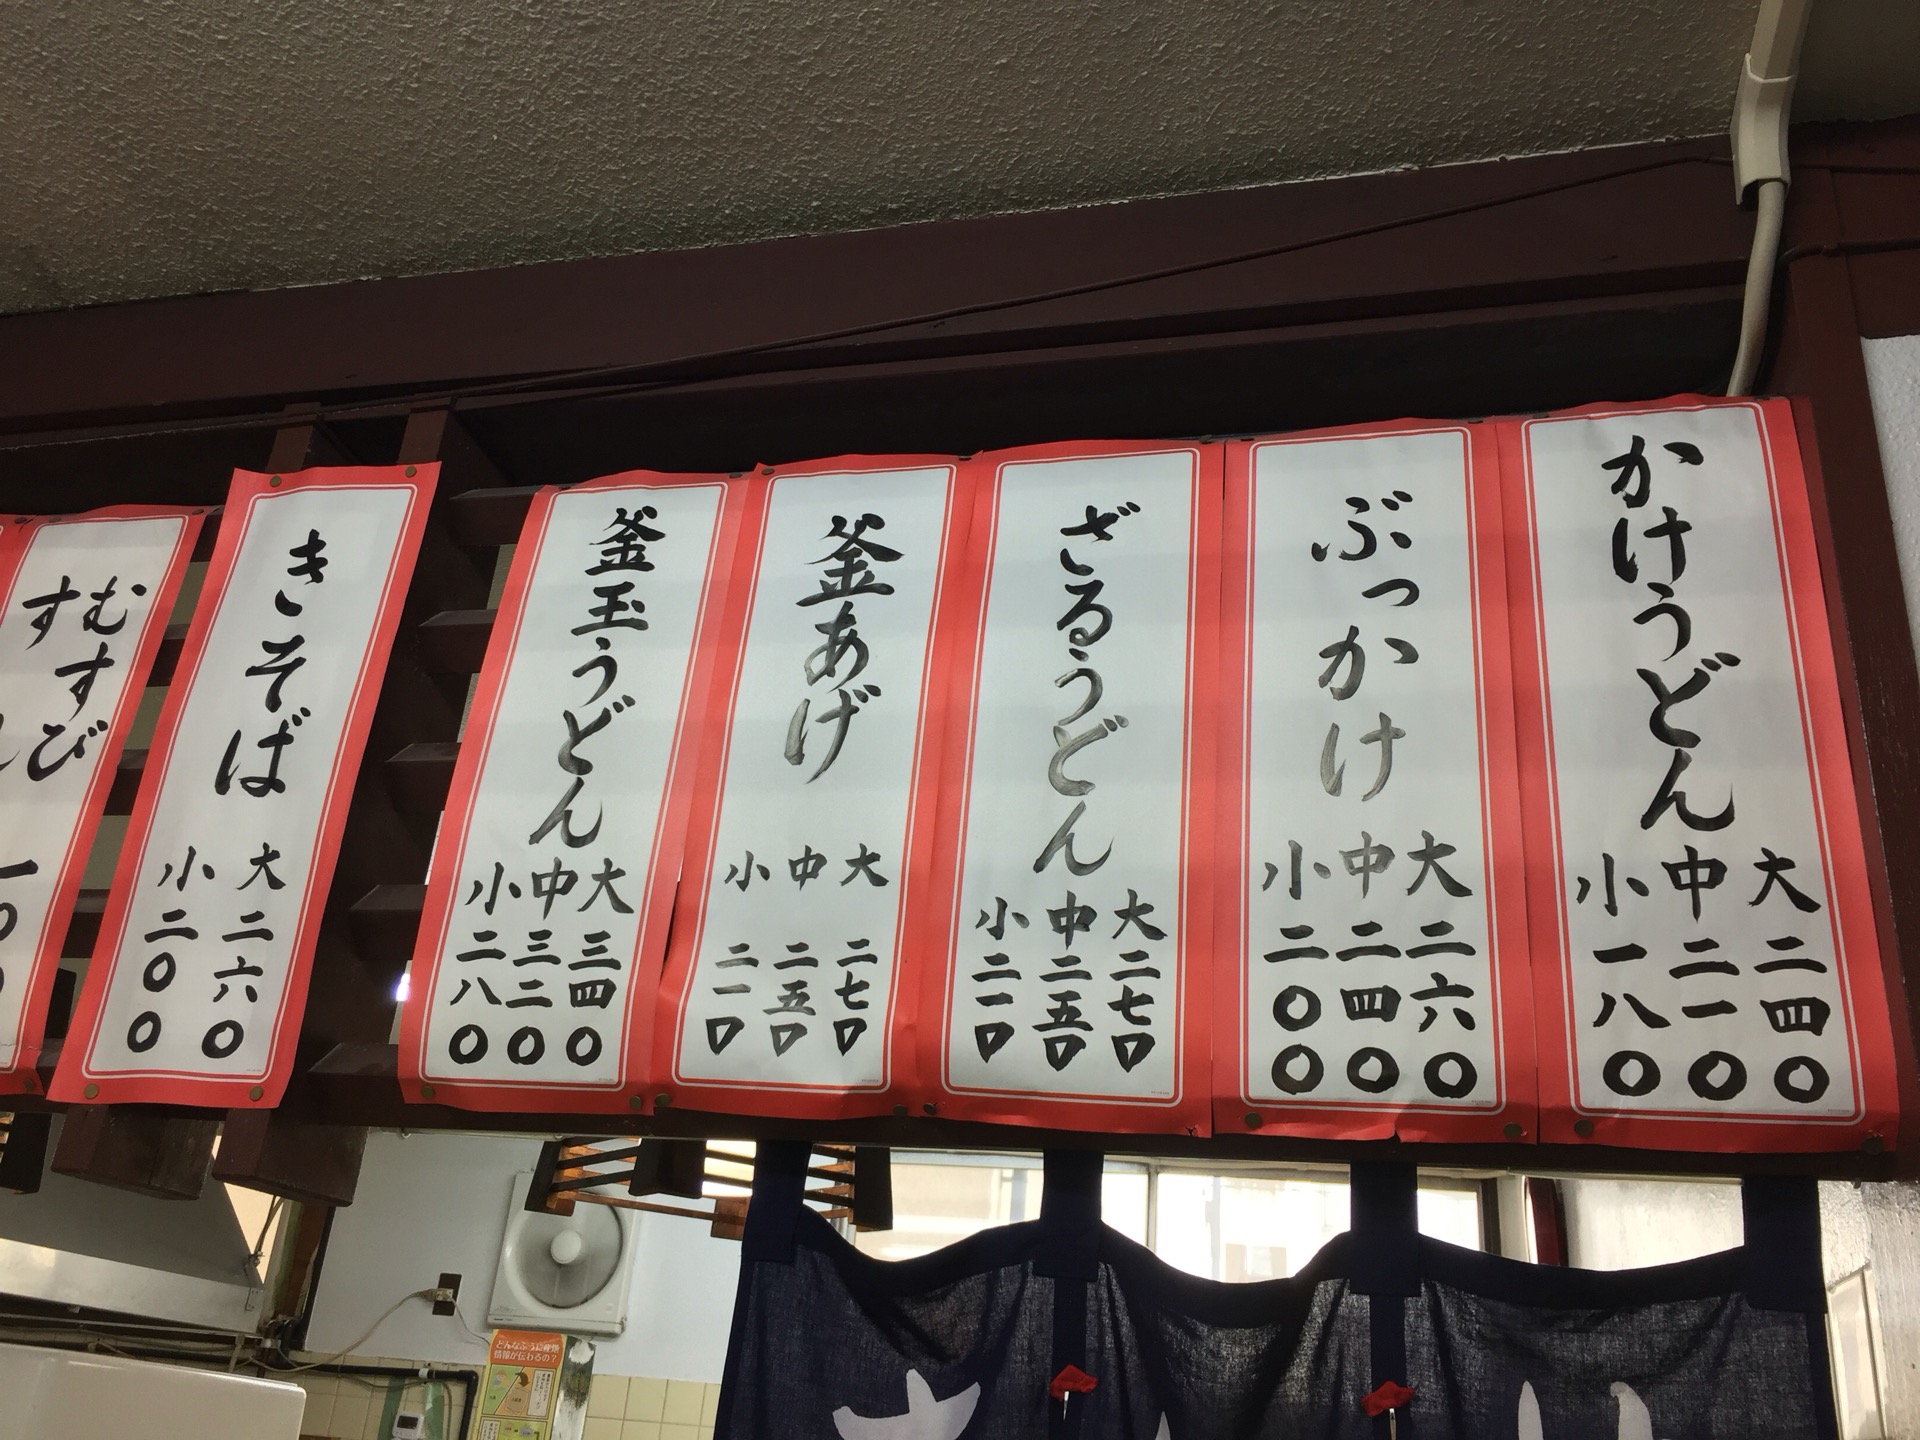 かけうどん
大 二四〇
中 二一〇
小 一八〇
ぶっかけ
大 二六〇
中 二四〇
小 二〇〇
ざるうどん
大 二七〇
中 二五〇
小 二一〇
釜あげ
大 二七〇
中 二五〇
小 二一〇
釜玉うどん
大 三四〇
中 三二〇
小 二八〇
きそば
大 二六〇
小 二〇〇
むすび
す
一〇
どんなふうに緊急
情報が伝わるの?